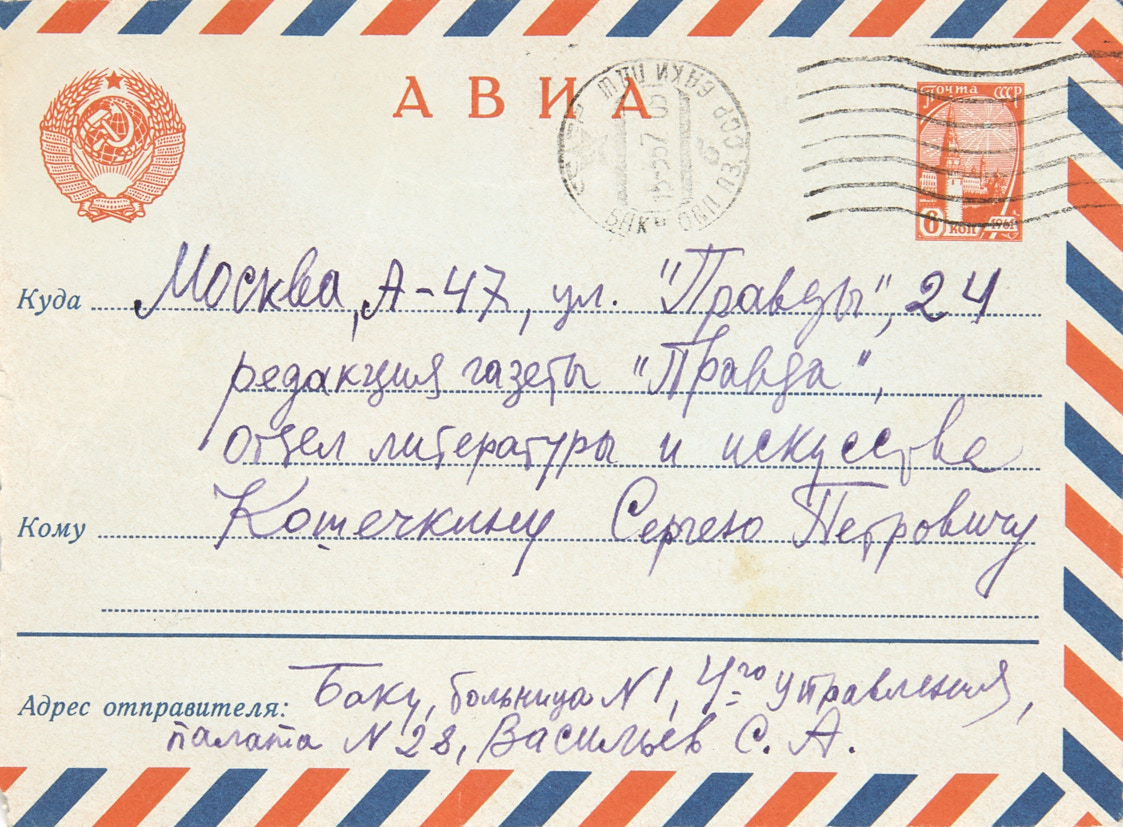 АВИА
Почта СССР
6 коп
1961
Куда Москва, А-47, ул. "Правды", 24
редакция газеты "Правда",
отдел литературы и искусства
Кому Кошечкину Сергею Петровичу
Адрес отправителя: Баку, больница N1, 4-го управления,
палата N 28, Васильев С. А.